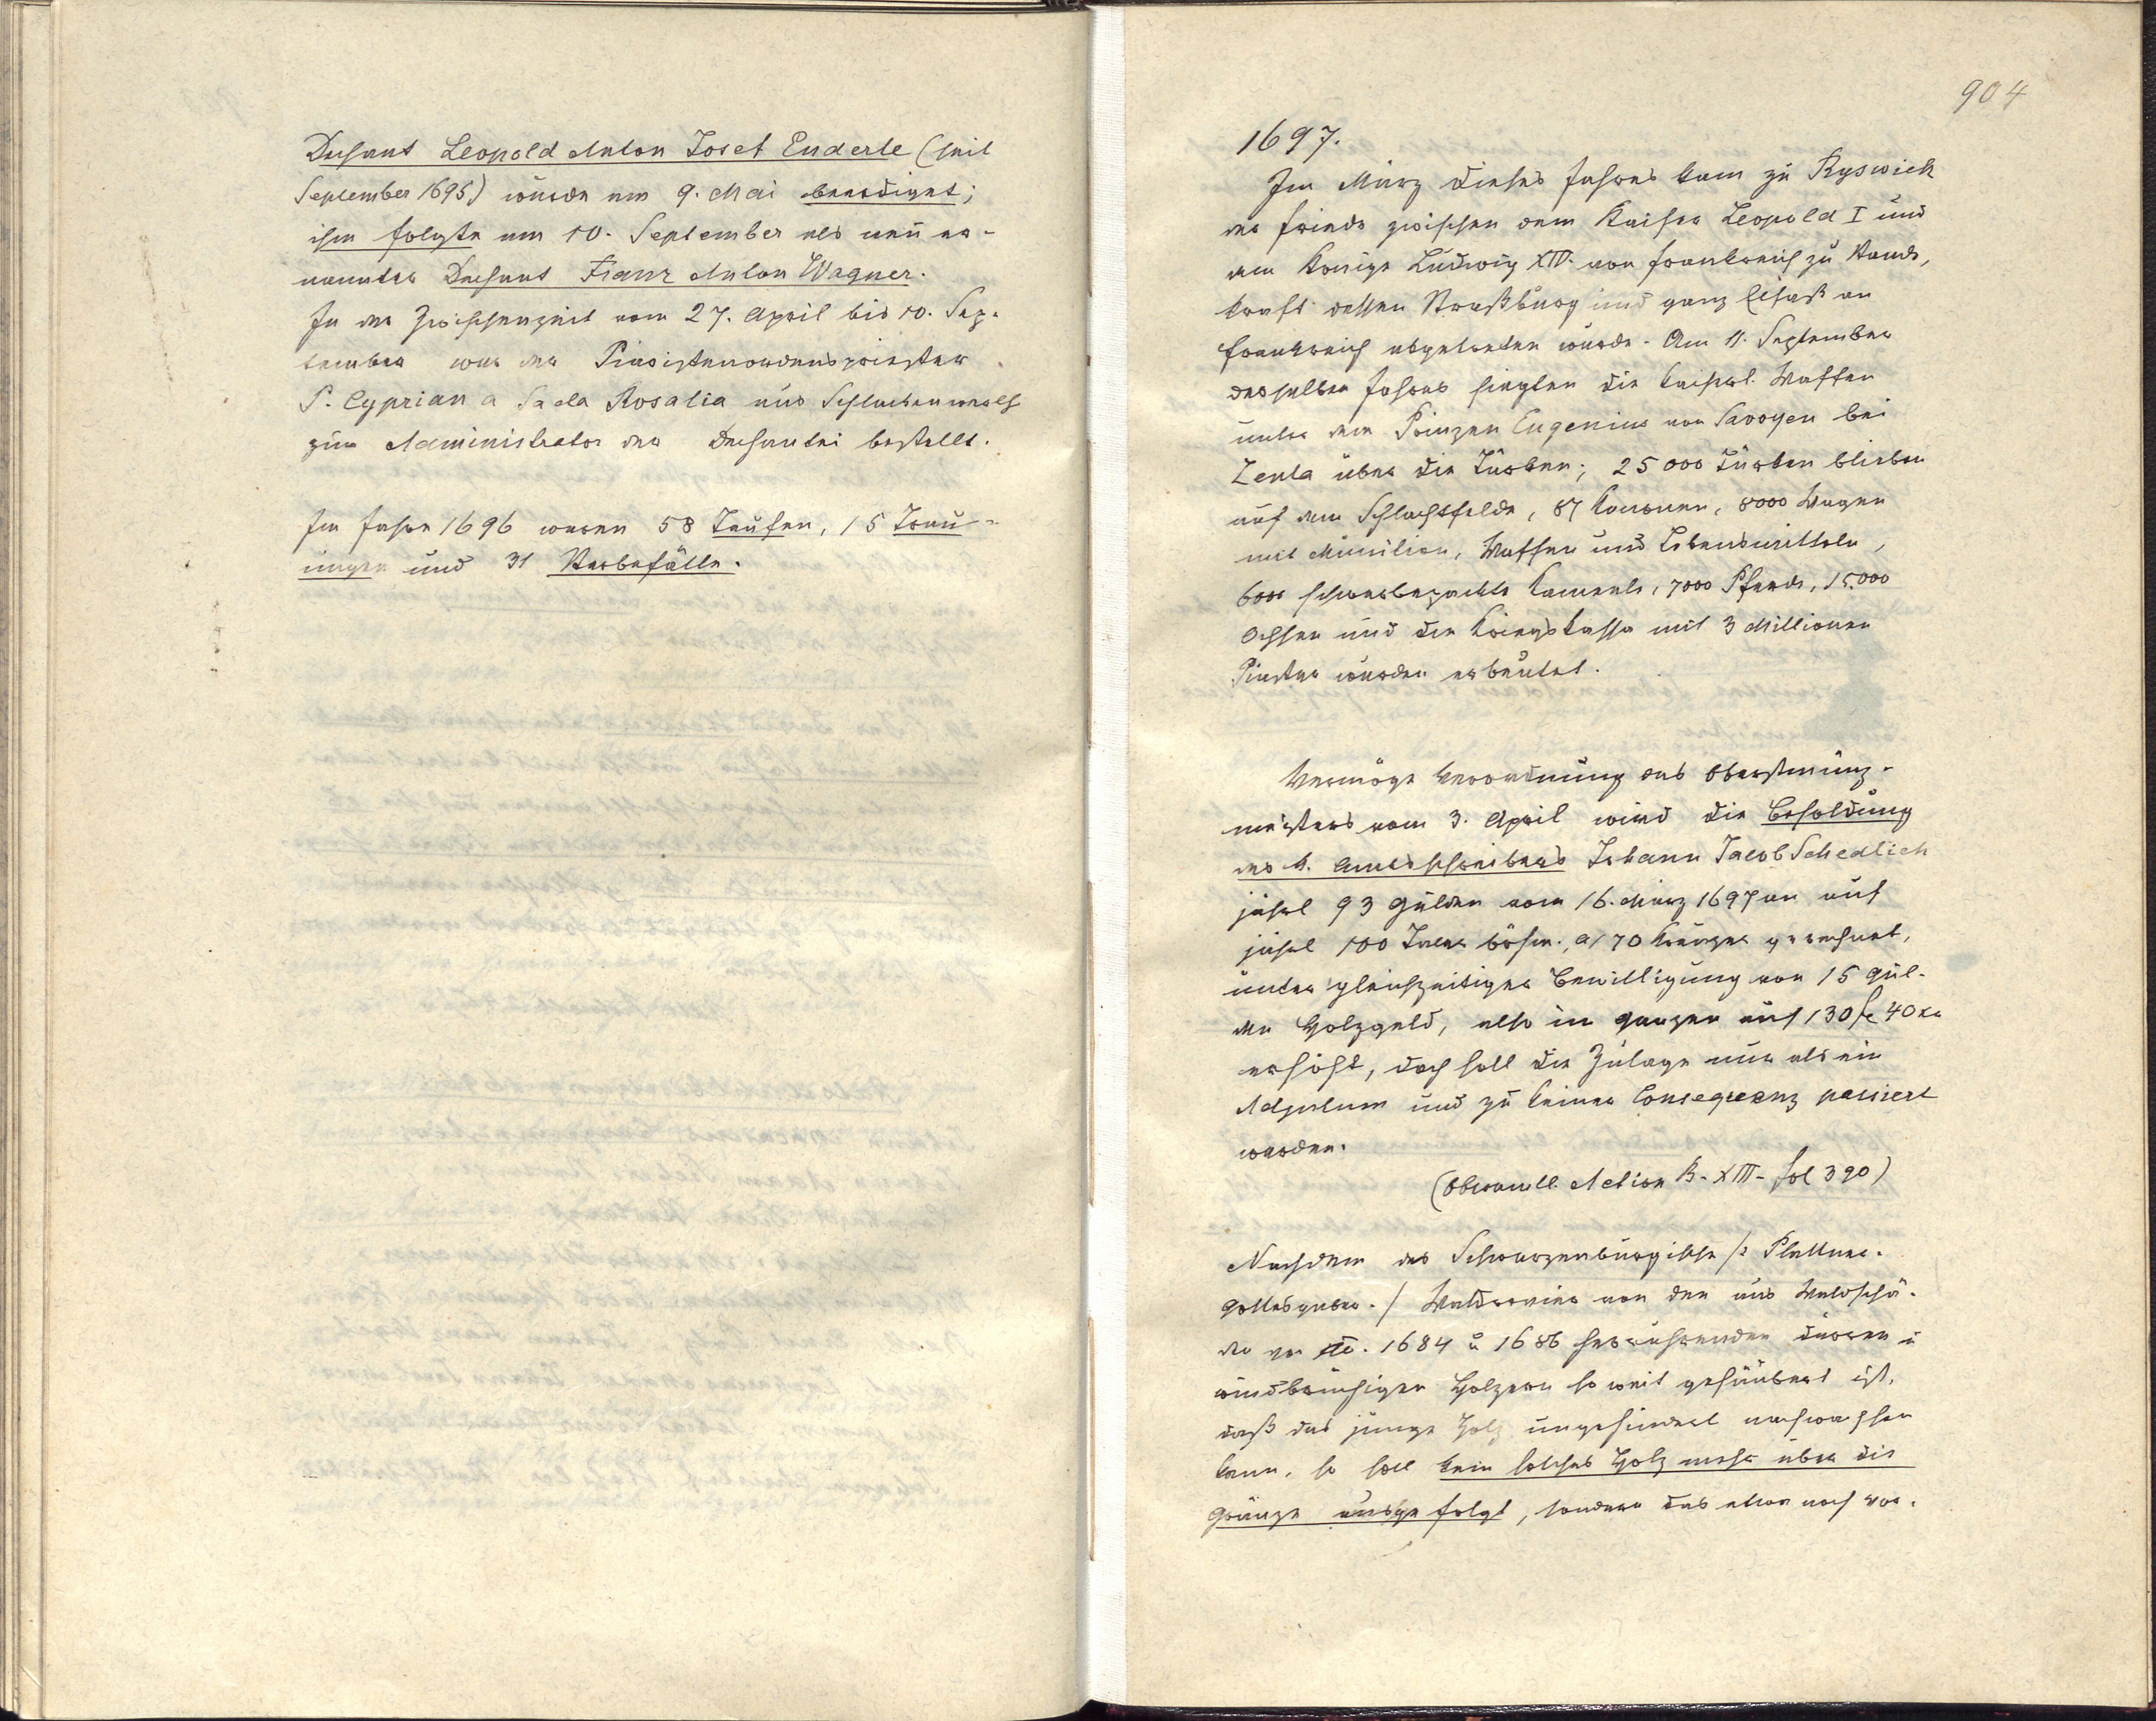 Dechant Leopold Anton Josef Enderle (seit
September 1695) wurde am 9. Mai beerdigt;
ihm folgte am 10. September als neu er-
nannter Dechant Franz Anton Wagner.
In der Zwischenzeit vom 27. April bis 10. Sep-
tember war der Piaristenordenspriester
P. Cyprian a Sa ola Rosalia aus Schlackenwerth
zum Administrator der Dechantei bestellt.
Im Jahre 1696 waren 58 Taufen, 15 Trau-
ungen und 31 Sterbefälle.
904
1697.
Im März dieses Jahres kam zu Ryswick
der Friede zwischen dem Kaiser Leopold I und
dem Könige Ludwig XIV. von Frankreich zu Stande,
kraft dessen Straßburg und ganz Elsaß an
Frankreich abgetreten wurde. Am 11. September
desselben Jahres siegten die kaiserl. Waffen
unter dem Prinzen Eugenius von Savoyen bei
Zenta über die Türken; 25000 Türken blieben
auf dem Schlachtfelde, 87 Kanonen, 8000 Wagen
mit Munition, Waffen und Lebensmitteln,
6000 schwerbepackte Kameele, 7000 Pferde, 15.000
Ochsen und die Kriegskassa mit 3 Millionen
Piaster wurden erbeutet.
Vermöge Verordnung des Oberstmünz-
meisters vom 3. April wird die Besoldung
des k. Amtsschreibers Johann Jacob Schedlich
jährl 93 Gulden vom 16. März 1697 an auf
jährl 100 Taler böhm., a/ 70 Kreuzer gerechnet,
unter gleichzeitiger Bewilligung von 15 Gul-
den Holzgeld, also im ganzen auf 130 fl 40 kr
erhöht, doch soll die Zulage nur als ein
Adjutum und zu keiner Consequenz passiert
werden.
(Oberamtl. Action B. XIII. fol 390)
Nachdem das Schwarzenburgische /: Plattner-
Gottesgaber :/ Waldrevier von den aus Waldschä-
de von Ao. 1684 u 1686 herrührenden dürren u
windbrüchigen Holzern so weit gesäubert ist,
daß das junge Holz ungehindert nachwachsen
kann, so soll kein solches Holz mehr über die
Gränze ausgefolgt, sondern das etwa noch vor-